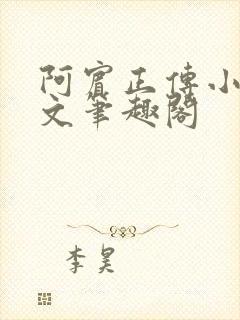 阿賓正傳小
文筆趣閣
李昊